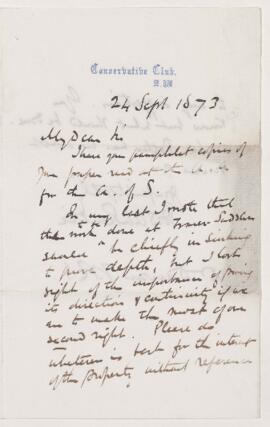 Conservative Club,
S.W.
24 Sept. 1873
My Dear Sir
I have yr pamphlet copies of
yr paper read at the
for the A. of S.
In my last I wrote that
the work done at Fraser Saddler
should "be chiefly in sinking
to prove depth", but I lost
sight of the importance of proving
its direction & continuity if we
are to make the most of our
second right. Please do
whatever is best for the interest
of the property without reference